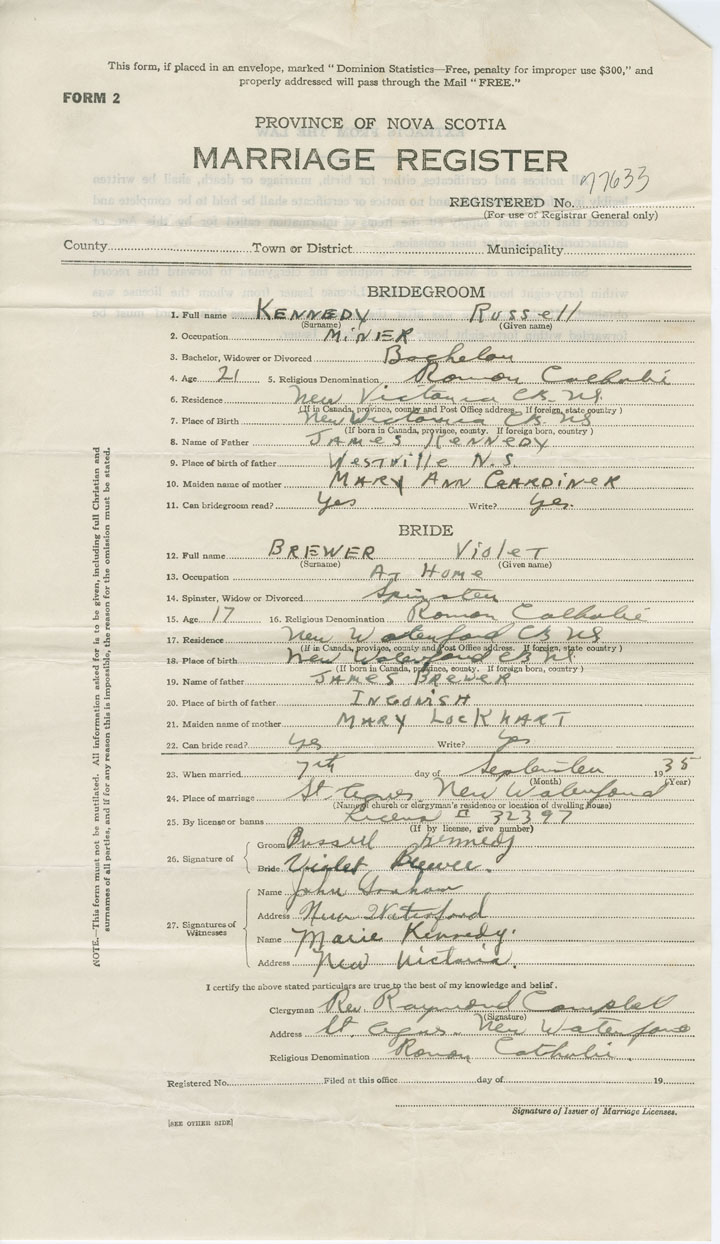 This form, if placed in an envelope, marked "Dominion Statistics—Free, penalty for improper use $300," and
properly addressed will pass through the Mail "FREE."
FORM 2
PROVINCE OF NOVA SCOTIA
MARRIAGE REGISTER
REGISTERED No. 77633
(For use of Registrar General only)
County Town or District Municipality
BRIDEGROOM
1. Full name KENNEDY Russell
(Surname) (Given name)
2. Occupation MINER
3. Bachelor, Widower or Divorced Bachelor
4. Age 21 5. Religious Denomination Roman Catholic
6. Residence New Victoria CB. NS.
(If in Canada, province, county and Post Office address. If foreign, state country)
7. Place of Birth New Victoria CB NS
(If born in Canada, province, county. If foreign born, country)
8. Name of Father JAMES KENNEDY
9. Place of birth of father Westville N.S.
10. Maiden name of mother MARY ANN GARDINER
11. Can bridegroom read? Yes Write? Yes.
BRIDE
12. Full name BREWER Violet
(Surname) (Given name)
13. Occupation At Home
14. Spinster, Widow or Divorced Spinster
15. Age 17 16. Religious Denomination Roman Catholic
17. Residence New Waterford CB NS
(If in Canada, province, county and Post Office address. If foreign, state country)
18. Place of birth New Waterford CB NS.
(If born in Canada, province, county. If foreign born, country)
19. Name of father JAMES BREWER
20. Place of birth of father INGONISH
21. Maiden name of mother MARY LOCKHART
22. Can bride read? Yes Write? Yes
23. When married 7th day of September 1935
(Month) (Year)
24. Place of marriage St. Agnes New Waterford
(Name of church or clergyman's residence or location of dwelling house)
25. By license or banns 32397
(If by license, give number)
Groom Russell Kennedy
26. Signature of
Bride Violet Brewer.
Name John
Address New Waterford
27. Signatures of
Witnesses
Name Marie Kennedy.
Address New Victoria.
I certify the above stated particulars are true to the best of my knowledge and belief.
Clergyman Rev. Raymond Campbell
(Signature)
Address St. Agnes New Waterford
Religious Denomination Roman Catholic.
Registered No. Filed at this office day of 19
Signature of Issuer of Marriage Licenses.
[SEE OTHER SIDE]
NOTE.—This form must not be mutilated. All information asked for is to be given, including full Christian and
surnames of all parties, and if for any reason this is impossible, the reason for the omission must be stated.